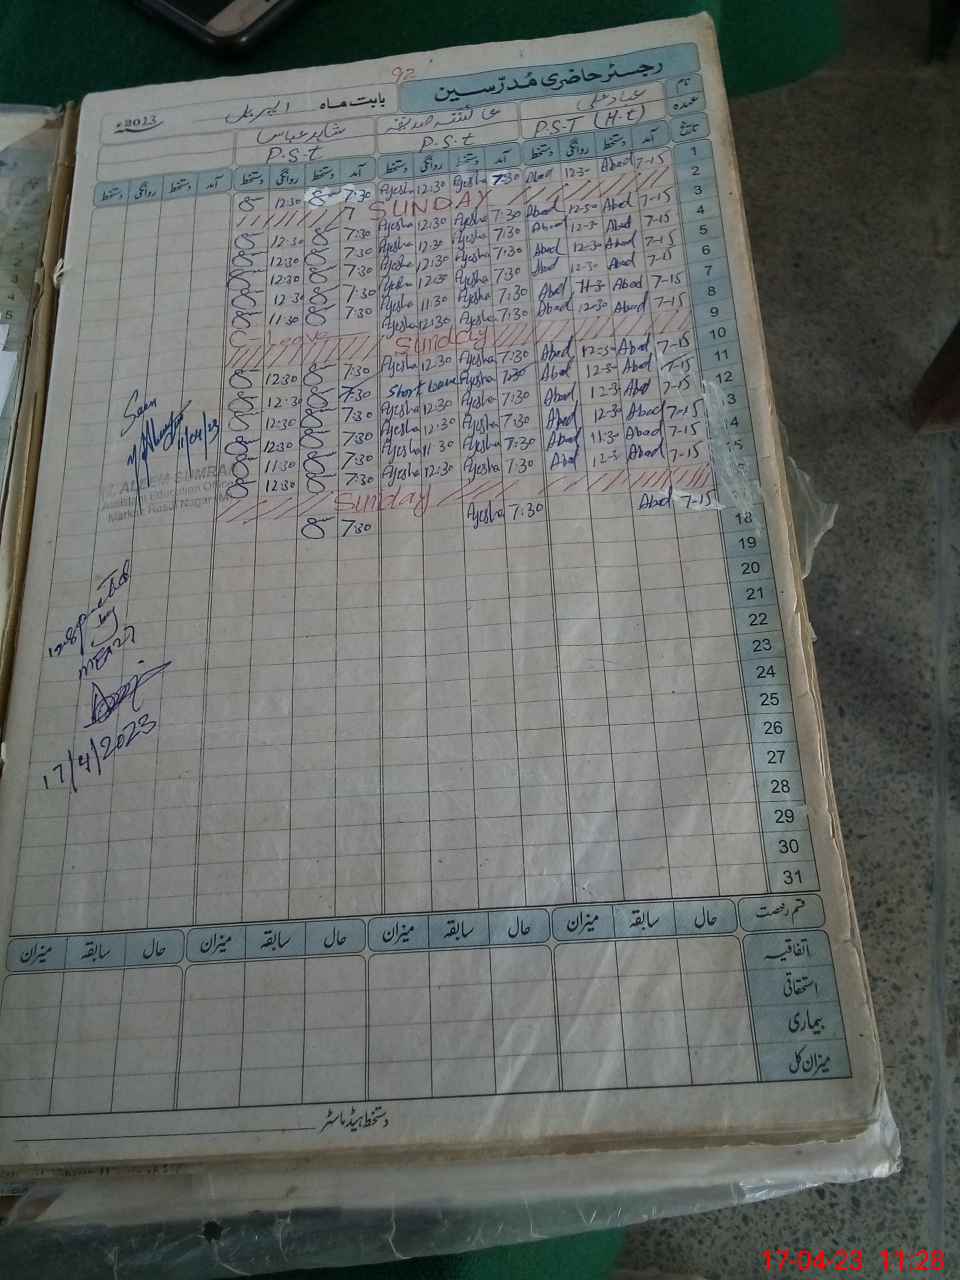 92
رجسٹر حاضری مُدرّسین
بابت ماہ اپریل 2023ء
نام عباد علی عائشہ صدیقہ شاہد عباس
عہدہ P.S.T (H.t) P.S.t P.S.t
تاریخ آمد دستخط روانگی دستخط آمد دستخط روانگی دستخط آمد دستخط روانگی دستخط آمد دستخط روانگی دستخط
1 7-15 Abad 12-30 Abad 7:30 Ayesha 12:30 Ayesha 7:30 12:30
2 SUNDAY
3 7-15 Abad 12-30 Abad 7:30 Ayesha 12:30 Ayesha 7:30 12:30
4 7-15 Abad 12-30 Abad 7:30 Ayesha 12:30 Ayesha 7:30 12:30
5 7-15 Abad 12-30 Abad 7:30 Ayesha 12:30 Ayesha 7:30 12:30
6 7-15 Abad 12-30 Abad 7:30 Ayesha 12:30 Ayesha 7:30 12:30
7 7-15 Abad 11-30 Abad 7:30 Ayesha 11:30 Ayesha 7:30 11:30
8 7-15 Abad 12-30 Abad 7:30 Ayesha 12:30 Ayesha
9 Sunday
10 7-15 Abad 12-30 Abad 7:30 Ayesha 12:30 Ayesha 7:30 12:30
11 7-15 Abad 12-30 Abad 7:30 Ayesha Short leave 7:30 12:30
12 7-15 Abad 12-30 Abad 7:30 Ayesha 12:30 Ayesha 7:30 12:30
13 7-15 Abad 12-30 Abad 7:30 Ayesha 12:30 Ayesha 7:30 12:30
14 7-15 Abad 11-30 Abad 7:30 Ayesha 11:30 Ayesha 7:30 11:30
15 7-15 Abad 12-30 Abad 7:30 Ayesha 12:30 Ayesha 7:30 12:30
Sunday
7-15 Abad 7:30 Ayesha 7:30
18
19
20
21
22
23
24
25
26
27
28
29
30
31
Seen
11/04/23
ALEEM SUMRA
Assistant Education Officer
Markaz Rasul Nagar
Inspected
by
MEA 27
17/4/2023
قسم رخصت حال سابقہ میزان حال سابقہ میزان حال سابقہ میزان حال سابقہ میزان
اتفاقیہ
استحقاقی
بیماری
میزان کل
دستخط ہیڈ ماسٹر
17-04-23 11:28